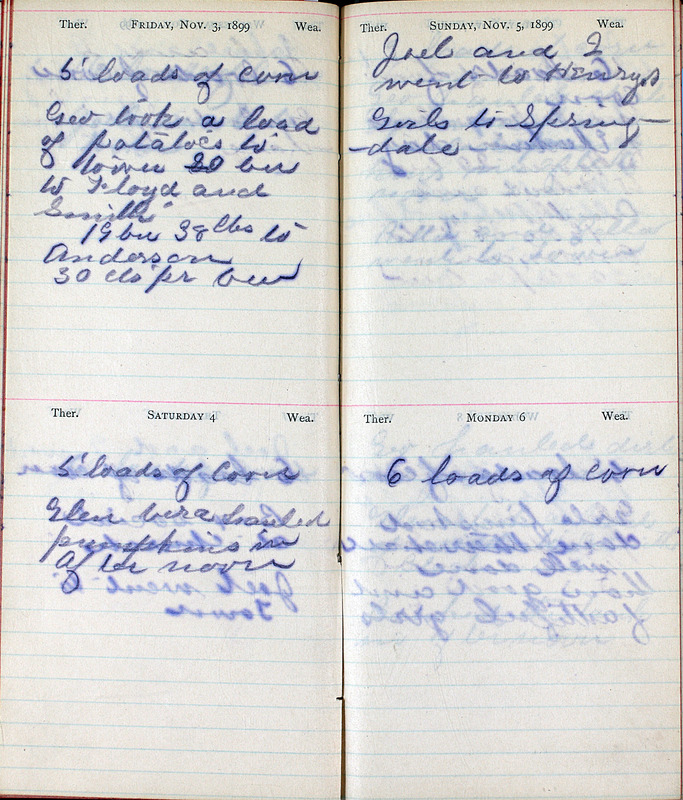 Ther. FRIDAY, NOV. 3, 1899 Wea.
5 loads of corn
Geo took a load
of potatoes to
town 20 bu
to Floyd and
Smith
19 bu 38 lbs to
Anderson
30 cts pr bu
Ther. SATURDAY 4 Wea.
5 loads of Corn
Glen Vera hauled
pumpkins in
after noon
Ther. SUNDAY, NOV. 5, 1899 Wea.
Joel and I
went to Henrys
Girls to Spring-
-dale
Ther. MONDAY 6 Wea.
6 loads of corn